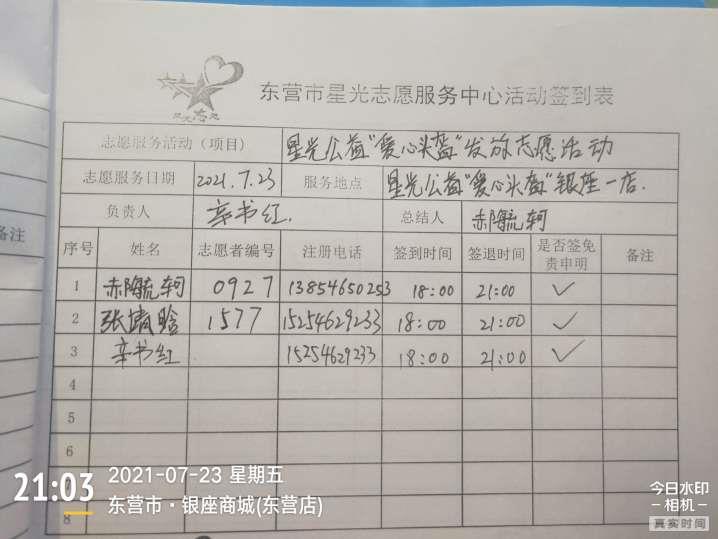 东营市星光志愿服务中心活动签到表
志愿服务活动（项目） 星光公益“爱心头盔”发放志愿活动
志愿服务日期 2021.7.23 服务地点 星光公益“爱心头盔”银座一店.
负责人 辛书红. 总结人 赤陶毓轲
序号 姓名 志愿者编号 注册电话 签到时间 签退时间 是否签免责申明 备注
1 赤陶毓轲 0927 13854650253 18:00 21:00 ✓
2 张靖晗 1577 15254629233 18:00 21:00 ✓
3 辛书红 15254629233 18:00 21:00 ✓
4
5
6
8
备注
21:03 2021-07-23 星期五
东营市·银座商城(东营店)
今日水印
-相机-
真实时间